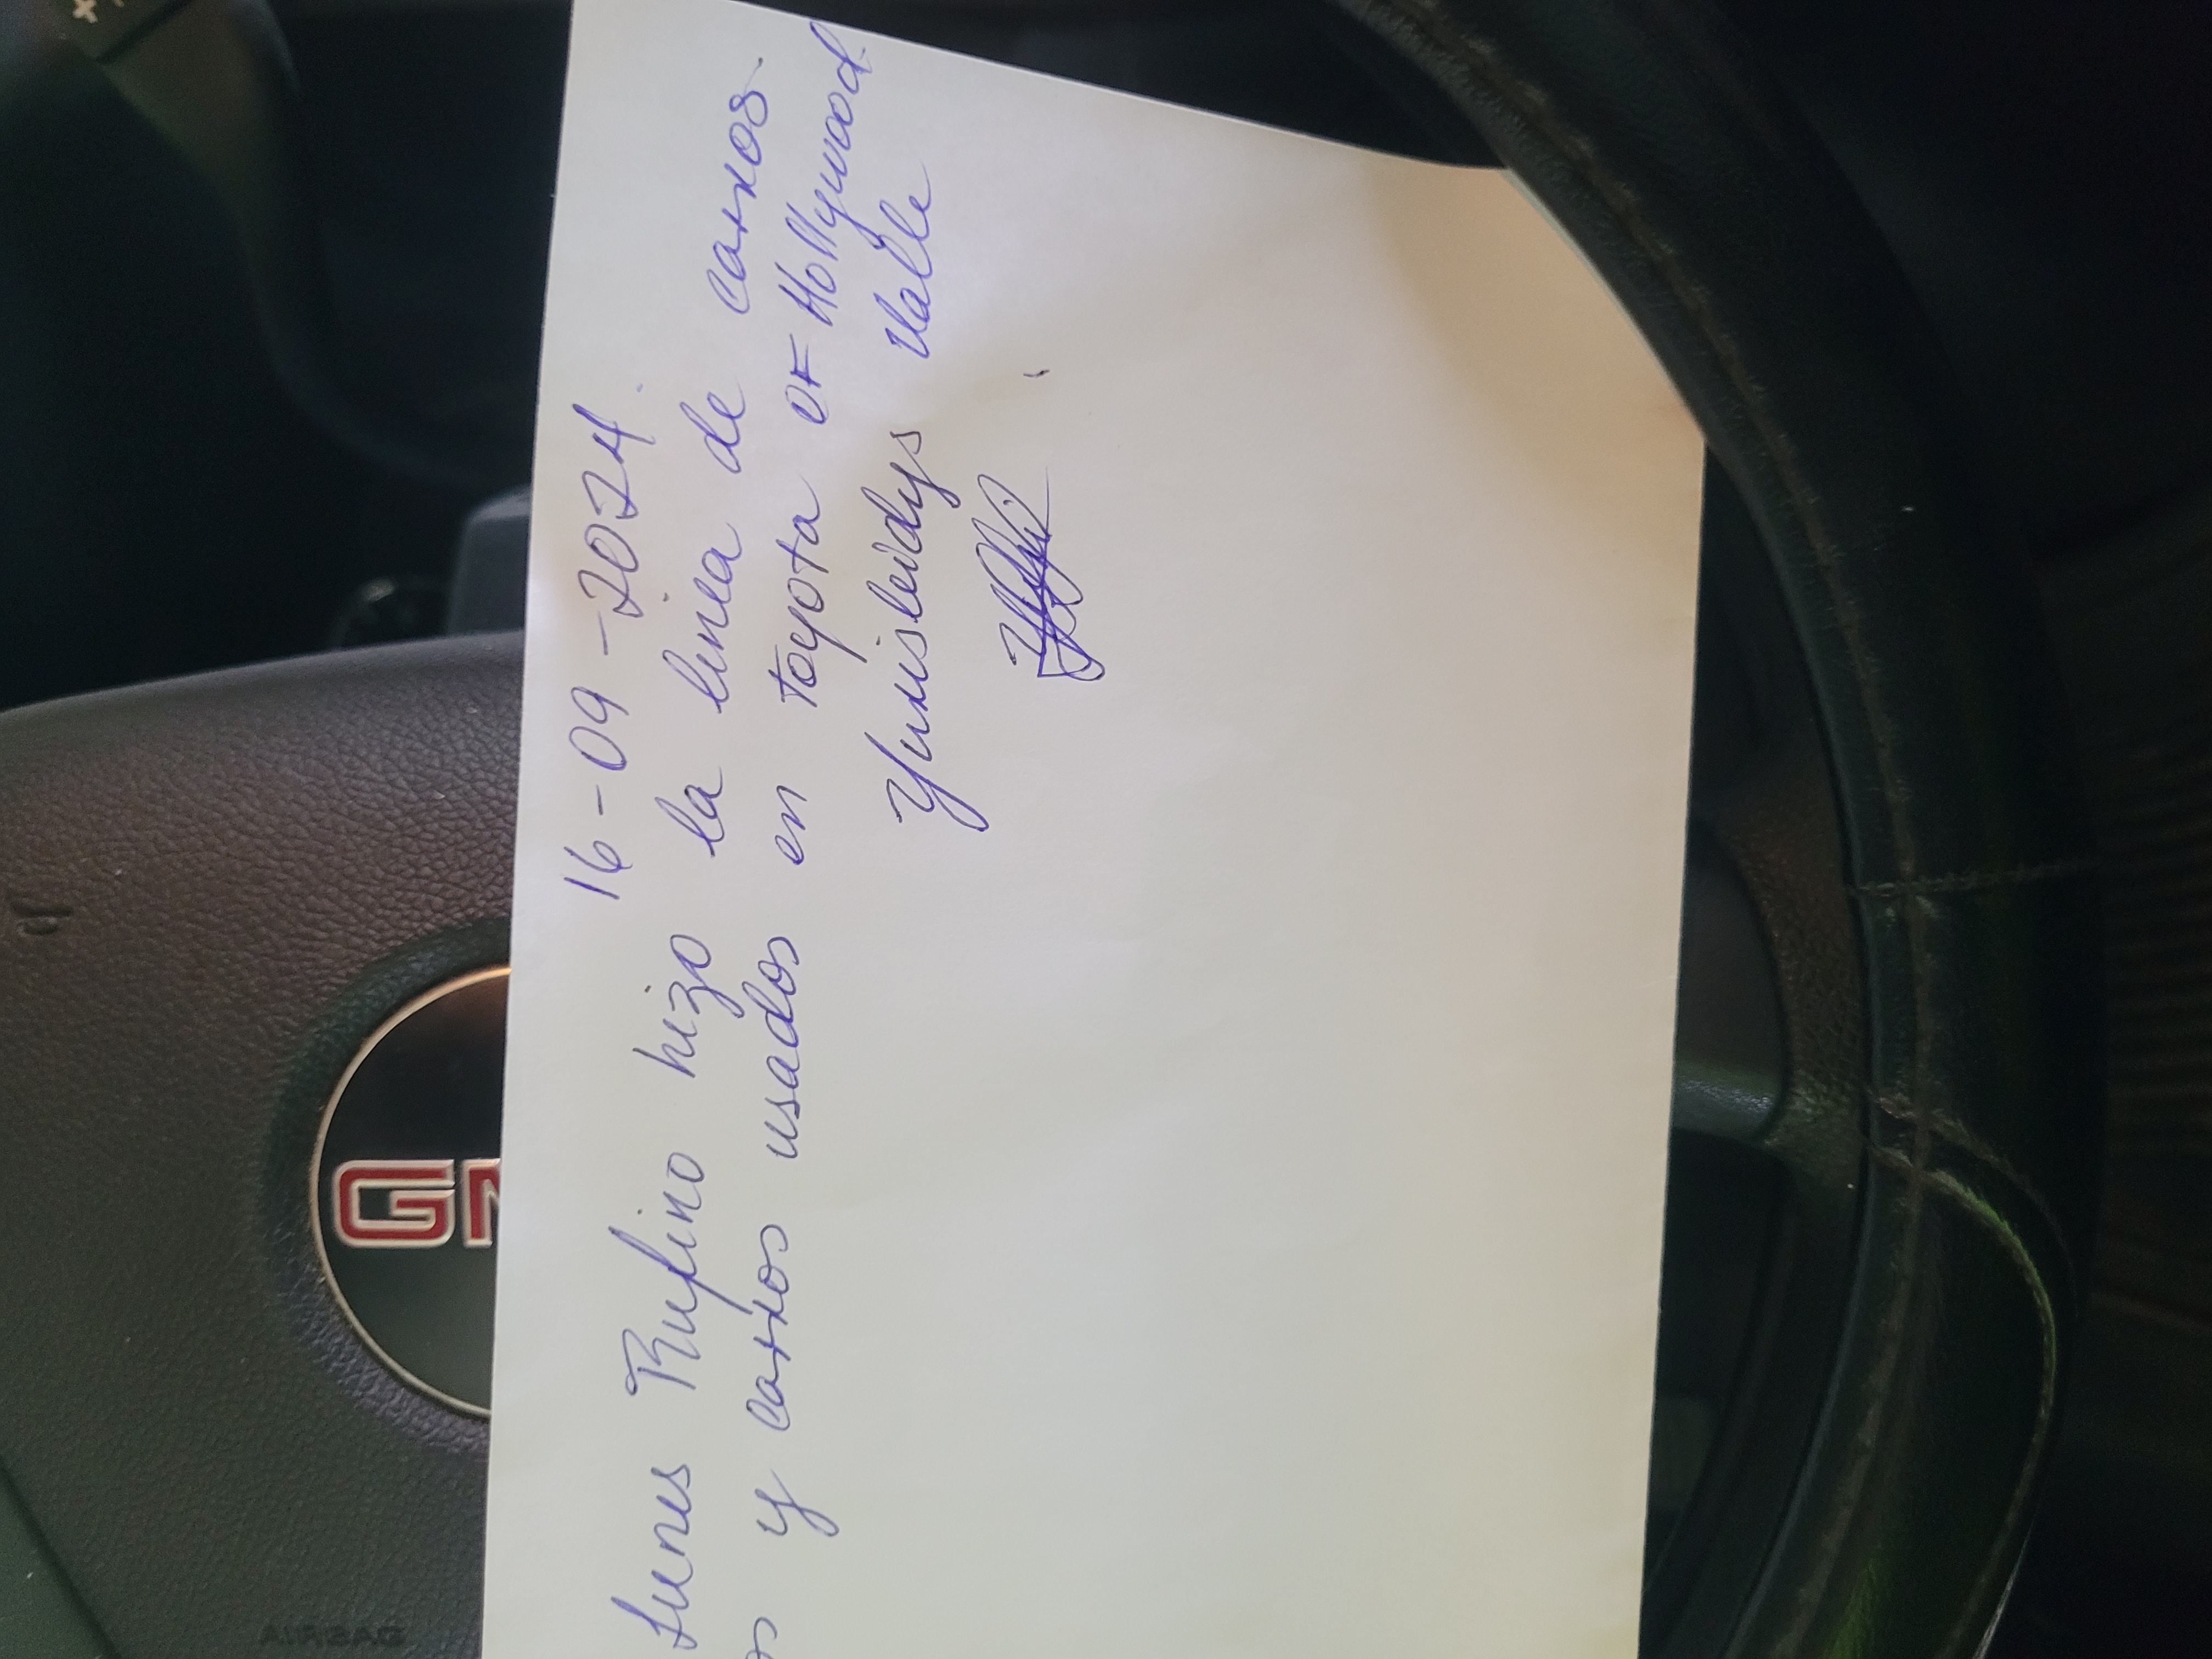 16-09-2024.
Lunes Rufino hizo la linea de carros
os y carros usados en toyota OF Hollywood.
Yunisleidys Valle
GM
AIRBAG